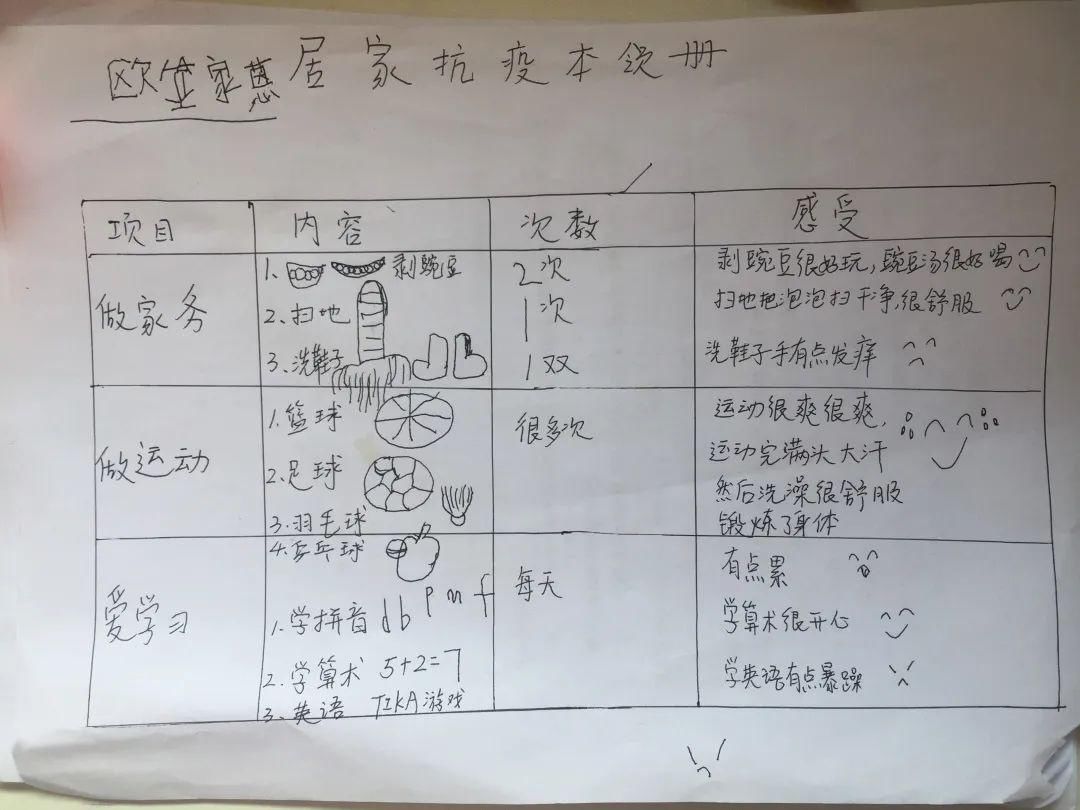 欧 家蕙居家抗疫本领册
项目 内容 次数 感受
做家务
1. 剥豌豆
2、扫地
3、洗鞋子
2次
1次
1双
剥豌豆很好玩,豌豆汤很好喝
扫地把泡泡扫干净,很舒服
洗鞋子手有点发痒
做运动
1.篮球
2.足球
3.羽毛球
4.乒乓球
很多次
运动很爽很爽,
运动完满头大汗
然后洗澡很舒服
锻炼了身体
爱学习
1.学拼音 d b p m f
2.学算术 5+2=7
3、英语 TIKA游戏
每天
有点累
学算术很开心
学英语有点暴躁